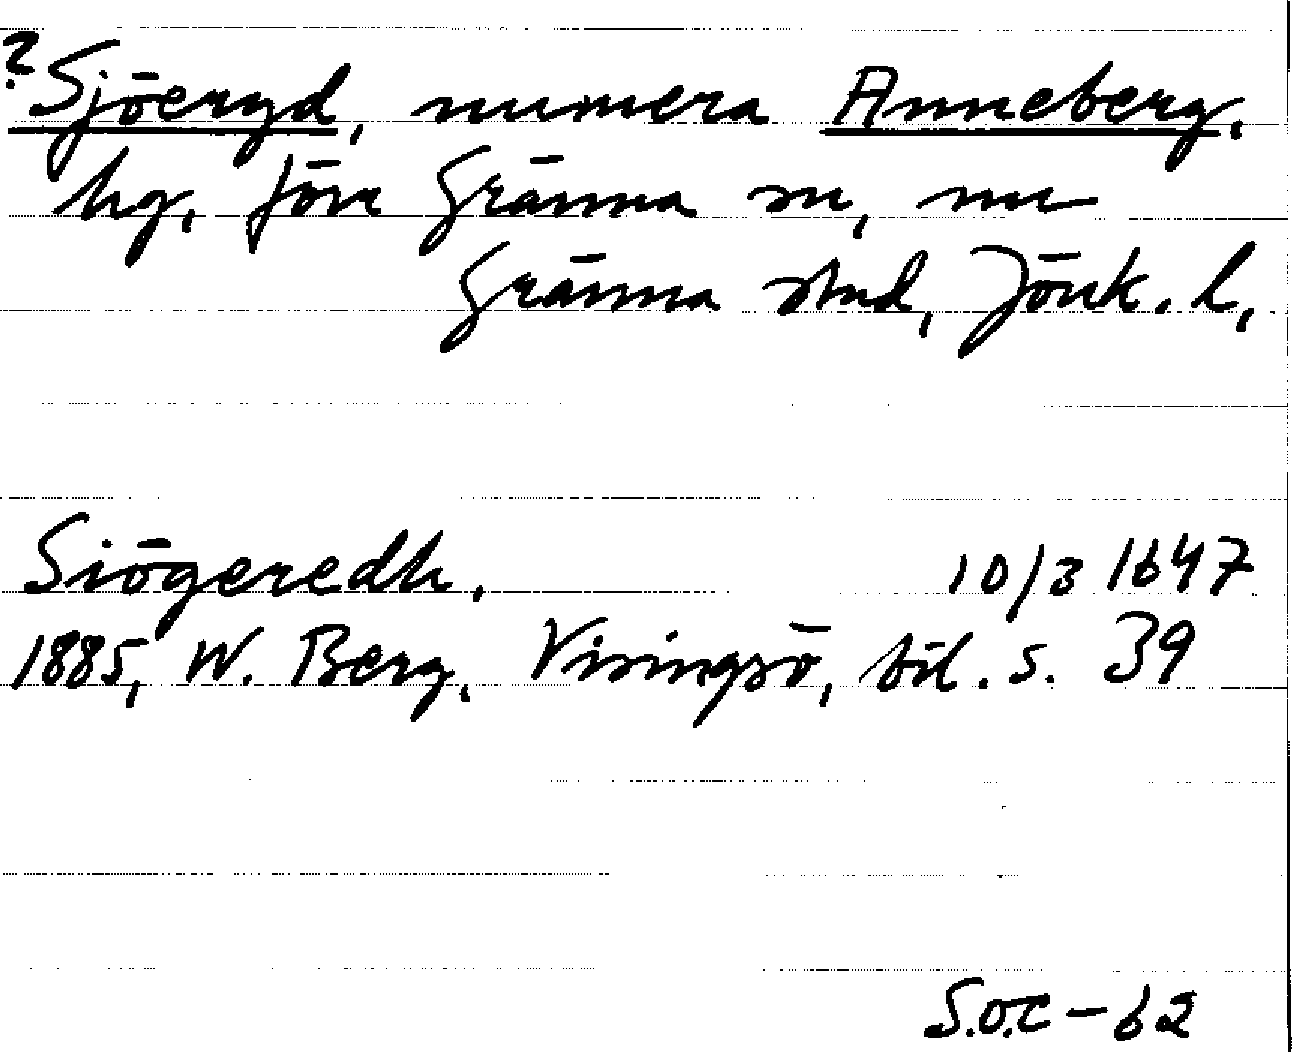 ? Sjöeryd, numera Anneberg,
hg, förr Gränna sn, nu
Gränna stad, Jönk. l,
Siögeredh, 10/3 1647
1885, W. Berg, Visingsö, bil. s. 39
S.O.C - 62